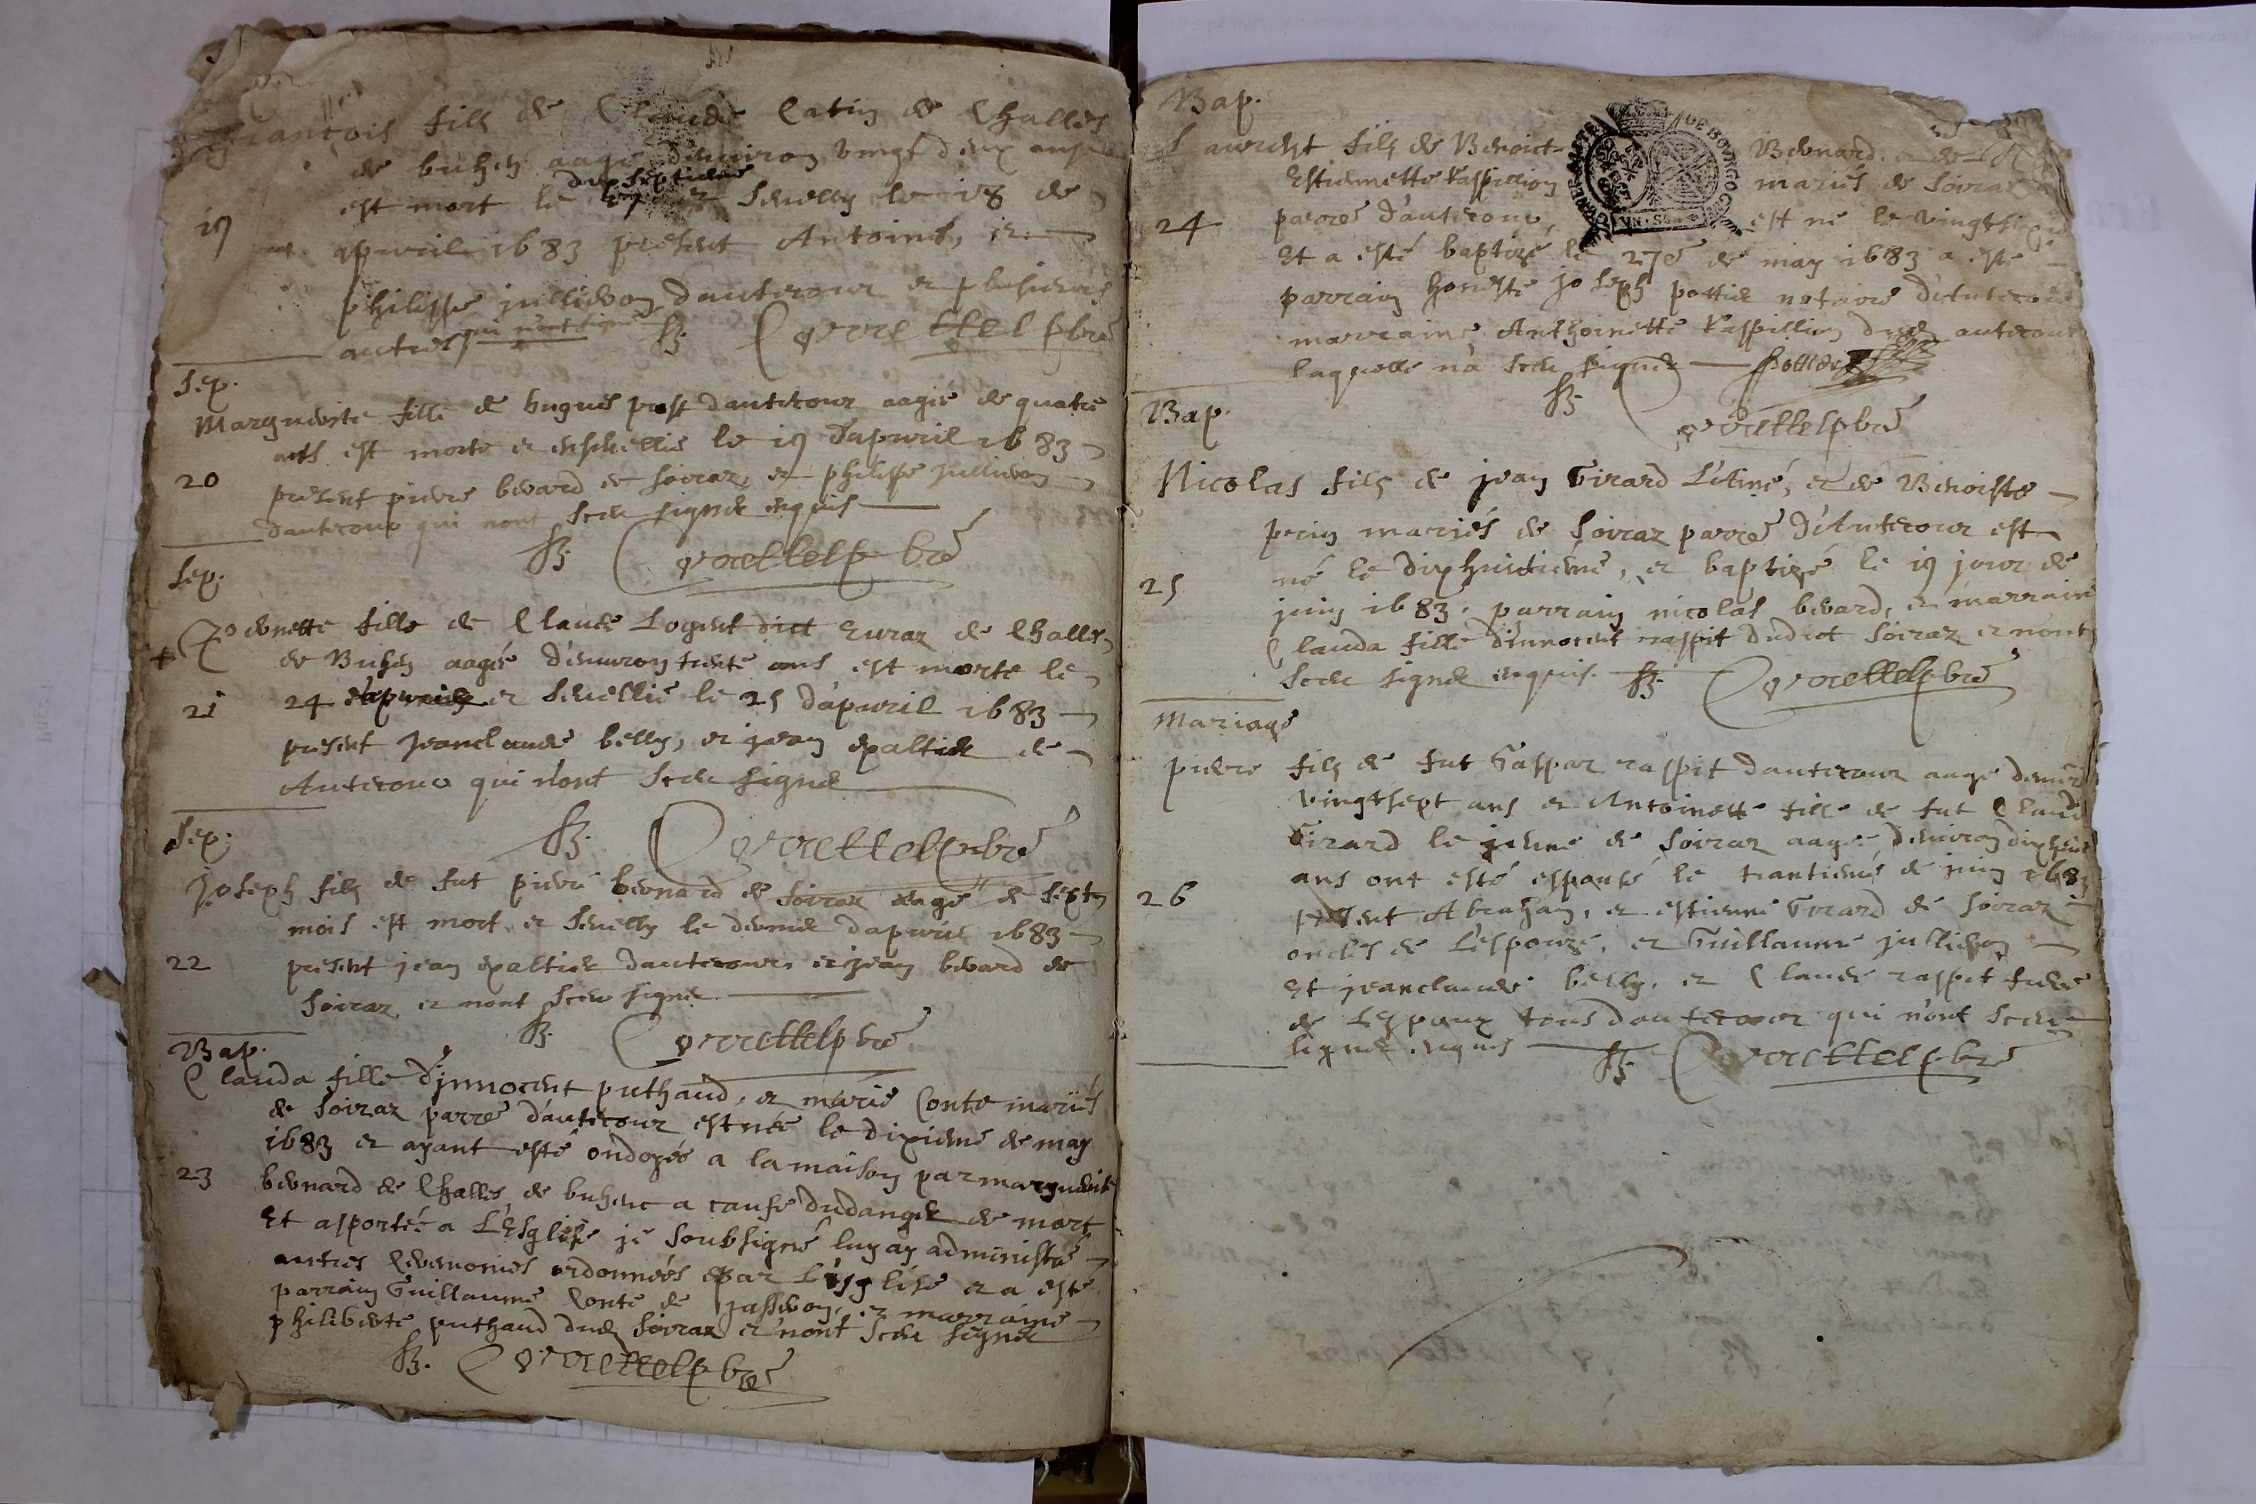 François fills de Claude Catin de Challes
de buhen aagé denviron vingt deux ans
dixseptieme
est mort le et Sevelly le 18 de
19
apvril 1683 present Antoine, et
philippe jullieron dautecour et plusieurs
autres qui n'ont signé Cornettet pbre
Sep.
Marguerite fille de hugues prost dautecour aagée de quatre
ans est morte et ensevellie le 19 d'apvril 1683
20
present pierre berard de soiraz et philippe jullieron
dautecour qui nont sceu signer enquis
Cornettet pbre
Sep.
Pernette fille de Claude Logent dict Euraz de Challes
de Buhen aagée d'environ trente ans est morte le
21
24 et Sevellie le 25 d'apvril 1683
present Jeanclaude belly, et jean expaltier de
Autecour qui n'ont sceu signer
Cornettet pbre
Sep.
Joseph fils de fut pierre bernard de soiraz aagé de sept
mois est mort et Sevelly le dernier dapvril 1683
22
present jean expaltier dautecour, et jean berard de
soiraz et nont sceu signer
Cornettet pbre
Bap.
Clauda fille d'jnnocent puthaud, et marie Conte mariés
de soiraz parre d'autecour est née le dixieme de may
1683 et ayant esté ondoyée a la maison par marguerite
23
bernard de Challes de buhenc a cause du danger de mort
Et asportée a L'Esglise je soubsigné luy ay administré
autres Ceremonies ordonnées par L'esglise et a esté
parrain Guillaume Conte de jasseron, et marraine
philiberte puthaud dud soiraz et n'ont sceu signer
Cornettet pbre
Bap.
Laurent fils de Benoict Bernard et de
Estiennette Raspillion mariés de soiraz
24
parre d'autecour, est né le vingtsix
Et a esté baptizé le 27e de may 1683 a esté
parrain honeste joseph pottier notaire d'Autecour
marraine Anthoinette Raspillion dud autecour
laquelle n'a sceu signer pottier
Cornettet pbre
Bap.
Nicolas fils de jean Girard L'étiné, et de Benoiste
perin mariés de soiraz parre d'Autecour est
né le dixhuictieme, et baptizé le 19 jour de
25
juin 1683. parrain nicolas berard, et marraine
Clauda fille d'innocent raspit dudict soiraz et nont
sceu signer enquis. Cornettet pbre
Mariage
pierre fils de fut Gaspar raspit dautecour aagé denvir
vingtsept ans et Antoinette fille de fut Claude
Girard le jeune de soiraz aagée denviron dixhuit
ans ont esté espousé le trantieme de juin 1683
26
present Abraham, et estienne Girard de soiraz
oncles de L'espouze, et Guillaume jullieron
Et jeanclaude belly, et Claude raspit frere
de L'espoux tous d'autecour qui n'ont sceu
signer enquis Cornettet pbre